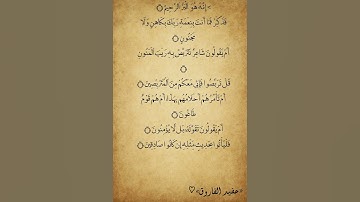 إِنَّهُ هُوَ الْبَرُّ الرَّحِيمُ ۝
فَذَكِّرْ فَمَا أَنتَ بِنِعْمَةِ رَبِّكَ بِكَاهِنٍ وَلَا
مَجْنُونٍ ۝
أَمْ يَقُولُونَ شَاعِرٌ نَّتَرَبَّصُ بِهِ رَيْبَ الْمَنُونِ
۝
قُلْ تَرَبَّصُوا فَإِنِّي مَعَكُم مِّنَ الْمُتَرَبِّصِينَ ۝
أَمْ تَأْمُرُهُمْ أَحْلَامُهُم بِهَٰذَا أَمْ هُمْ قَوْمٌ
طَاغُونَ ۝
أَمْ يَقُولُونَ تَقَوَّلَهُ بَل لَّا يُؤْمِنُونَ ۝
فَلْيَأْتُوا بِحَدِيثٍ مِّثْلِهِ إِن كَانُوا صَادِقِينَ ۝
«حفيد الفاروق» ♡